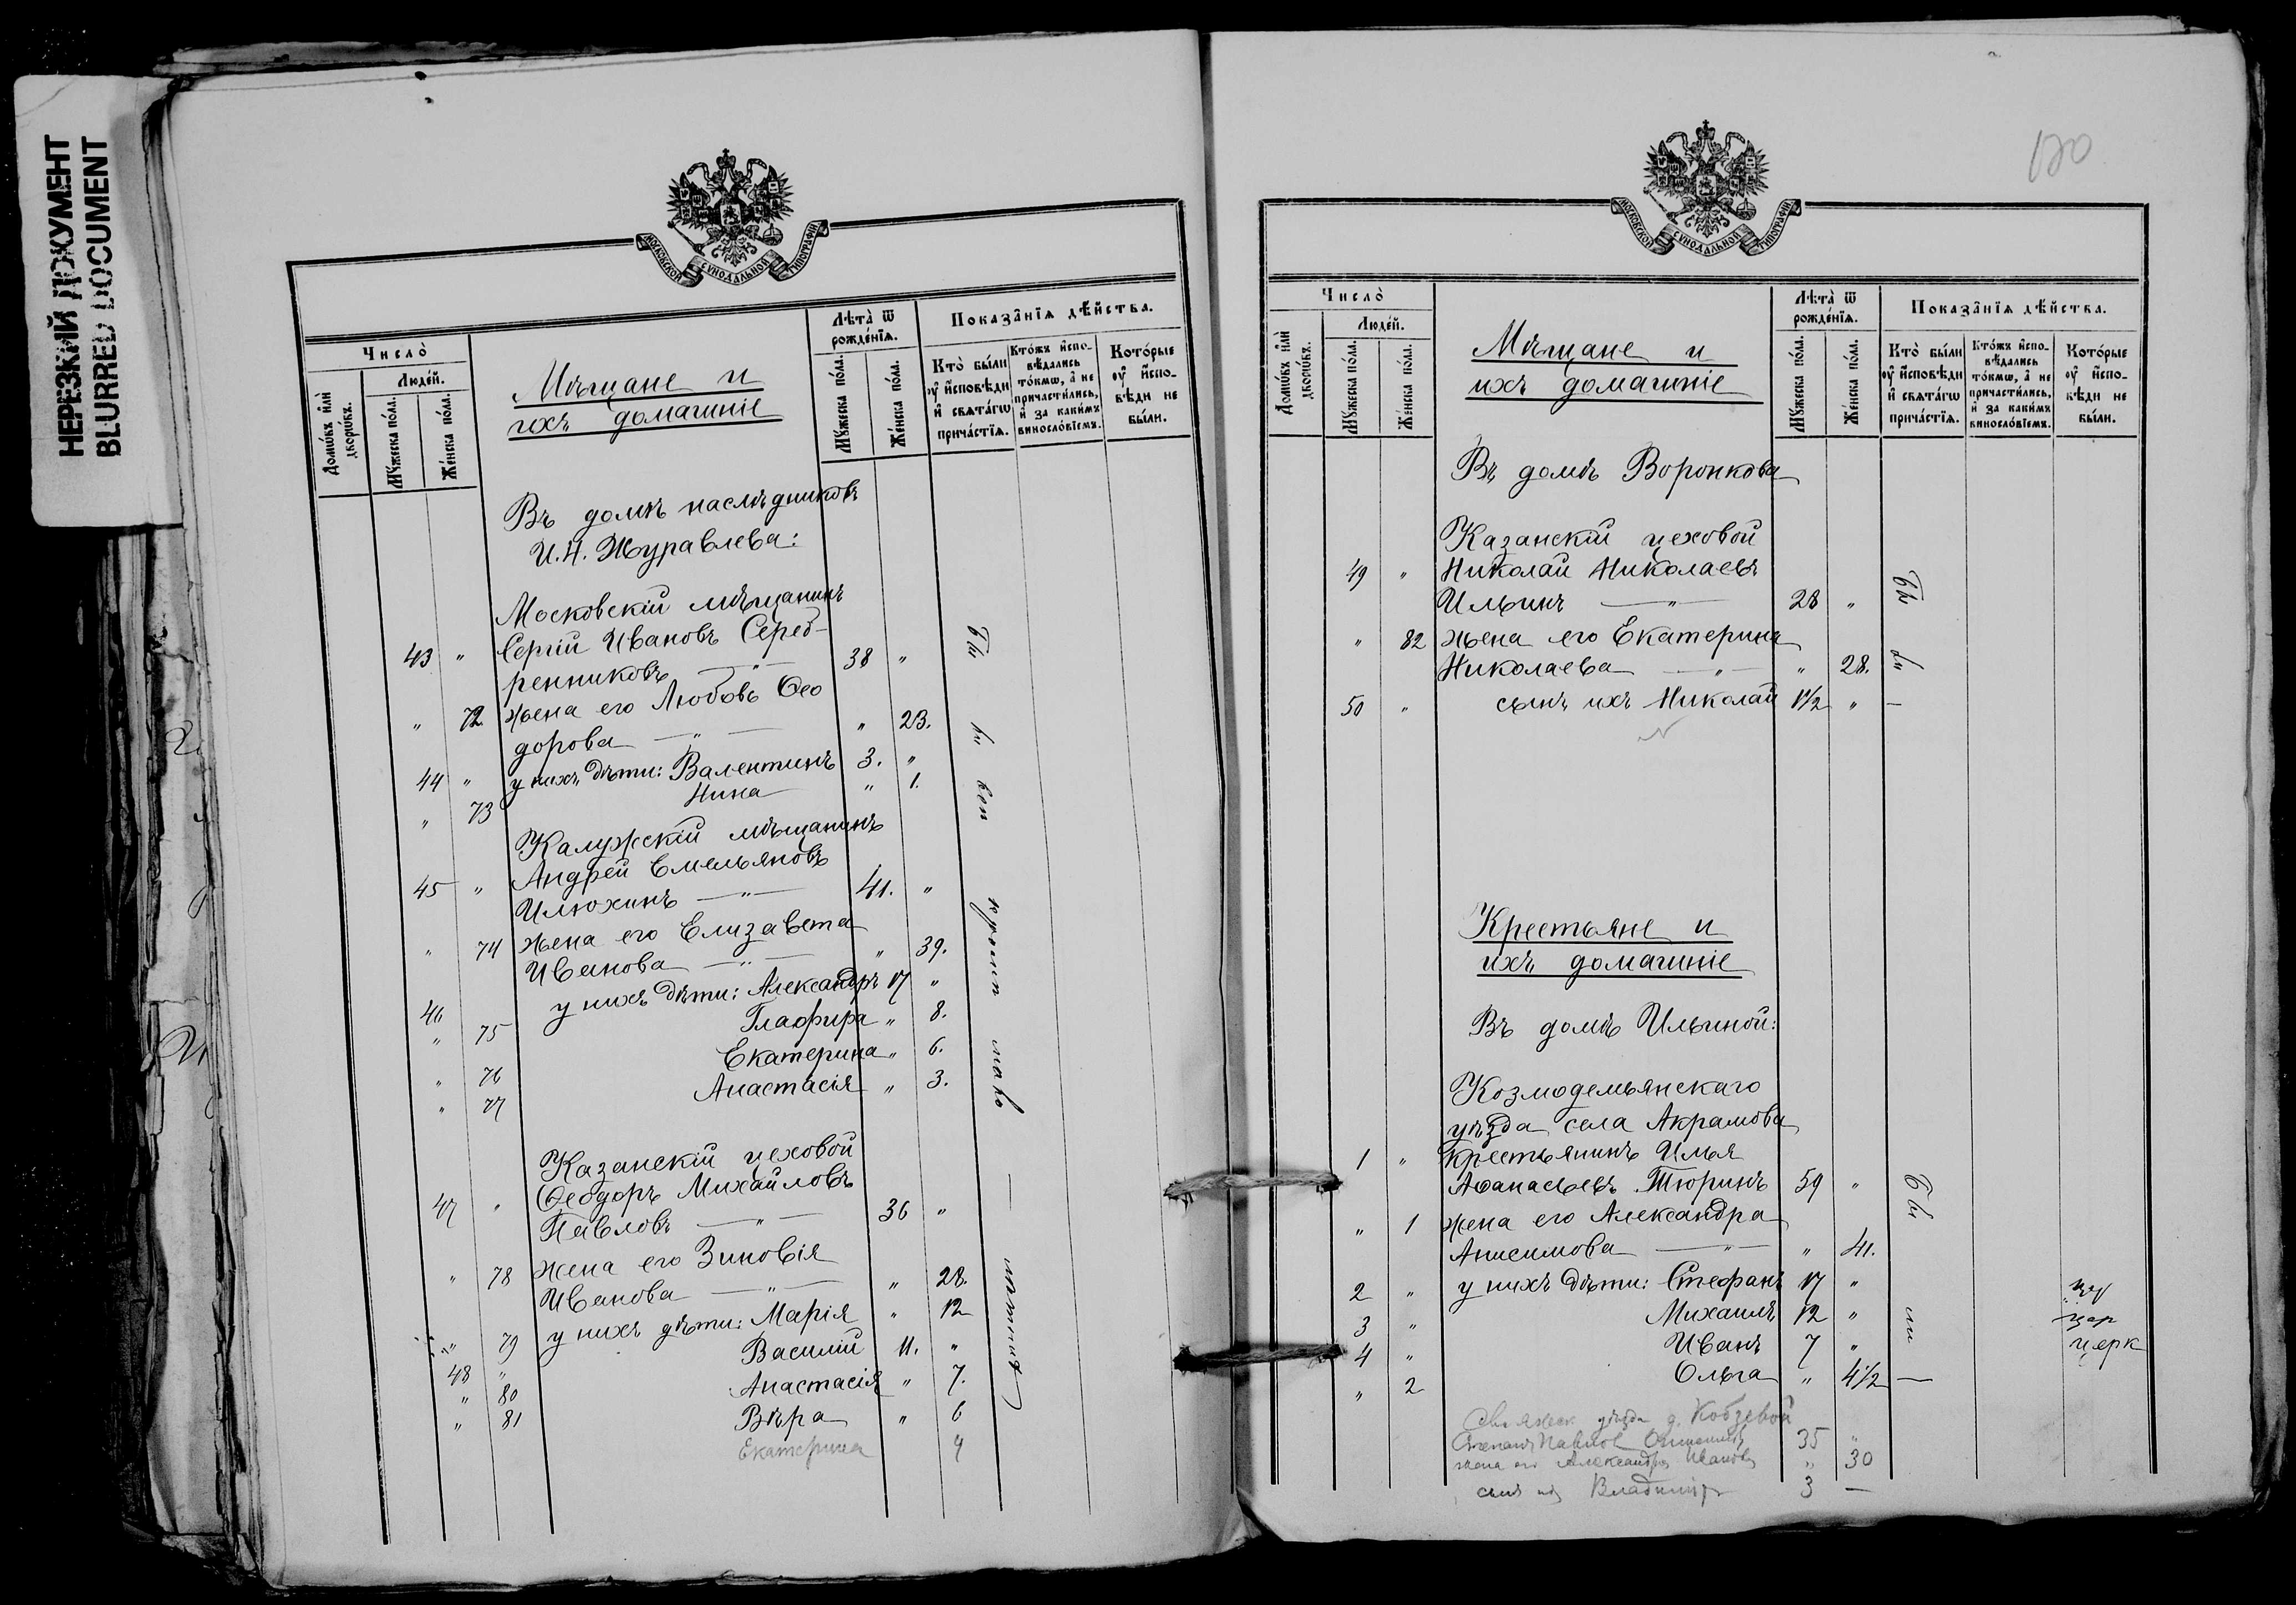 НЕРЕЗКИЙ ДОКУМЕНТ
BLURRED DOCUMENT
МОСКОВСКОЙ СУНОДАЛЬНОЙ ТИПОГРАФІИ
Число̀
Домѡ́въ и҆лѝ дворѡ́въ.
Люде́й.
Мꙋ́жеска по́ла.
Же́нска по́ла.
Мѣщане и
ихъ домашніе
Лѣта̀ ѿ рожде́нїѧ.
Мꙋ́жеска по́ла.
Же́нска по́ла.
Показа̑нїѧ дѣ́йства.
Кто̀ бы́ли ᲂу҆ и҆сповѣ́ди и҆ свѧта́гѡ прича́стїѧ.
Кто́жъ и҆спо- вѣ́дались то́кмѡ, а҆ не причасти́лись, и҆ за каки́мъ виносло́вїемъ.
Кото́рые ᲂу҆ и҆спо- вѣ́ди не бы́ли.
Въ домѣ наслѣдниковъ
И.Н. Журавлева:
Московскій мѣщанинъ
43 " Сергій Ивановъ Сереб-
ренниковъ — " — 38 "
" 72 жена его Любовь Ѳео
дорова — " — " 23.
44 " у нихъ дѣти: Валентинъ 3. "
" 73 Нина " 1.
Калужскій мѣщанинъ
45 " Андрей Емельяновъ
Илюхинъ — " — 41. "
" 74 жена его Елизавета
Иванова — " — " 39.
46 " у нихъ дѣти: Александръ 17 "
" 75 Глафира " 8.
" 76 Екатерина " 6.
" 77 Анастасія " 3.
Казанскій цеховой
47 " Ѳеодоръ Михайловъ
Павловъ — " — 36 "
" 78 жена его Зиновія
Иванова — " — " 28.
" 79 у нихъ дѣти: Марія " 12
48 " Василій 11. "
" 80 Анастасія " 7.
" 81 Вѣра " 6
Екатерина 4
Бы
120
МОСКОВСКОЙ СУНОДАЛЬНОЙ ТИПОГРАФІИ
Число̀
Домѡ́въ и҆лѝ дворѡ́въ.
Люде́й.
Мꙋ́жеска по́ла.
Же́нска по́ла.
Мѣщане и
ихъ домашніе
Лѣта̀ ѿ рожде́нїѧ.
Мꙋ́жеска по́ла.
Же́нска по́ла.
Показа̑нїѧ дѣ́йства.
Кто̀ бы́ли ᲂу҆ и҆сповѣ́ди и҆ свѧта́гѡ прича́стїѧ.
Кто́жъ и҆спо- вѣ́дались то́кмѡ, а҆ не причасти́лись, и҆ за каки́мъ виносло́вїемъ.
Кото́рые ᲂу҆ и҆спо- вѣ́ди не бы́ли.
Въ домѣ Воронкова
Казанскій цеховой
49 " Николай Николаевъ
Ильинъ — " — 28 " Бы
" 82 жена его Екатерина
Николаева — " — " 28. ли
50 " сынъ ихъ Николай 1 1/2 " —
Крестьяне и
ихъ домашніе
Въ домѣ Ильиной:
Козмодемьянскаго
уѣзда села Акрамова
1 " крестьянинъ Илья
Аѳанасьевъ Тюринъ 59 " Бы
" 1 жена его Александра
Анисимова — " — " 41.
2 " у нихъ дѣти: Стефанъ 17 "
3 " Михаилъ 12 " ли
4 " Иванъ 7 "
" 2 Ольга " 4 1/2 —
церк
уѣзда д. Кобзевой
Степанъ Павлов 35 "
жена его Александра Иванова " 30
сынъ их Владиміръ 3 —